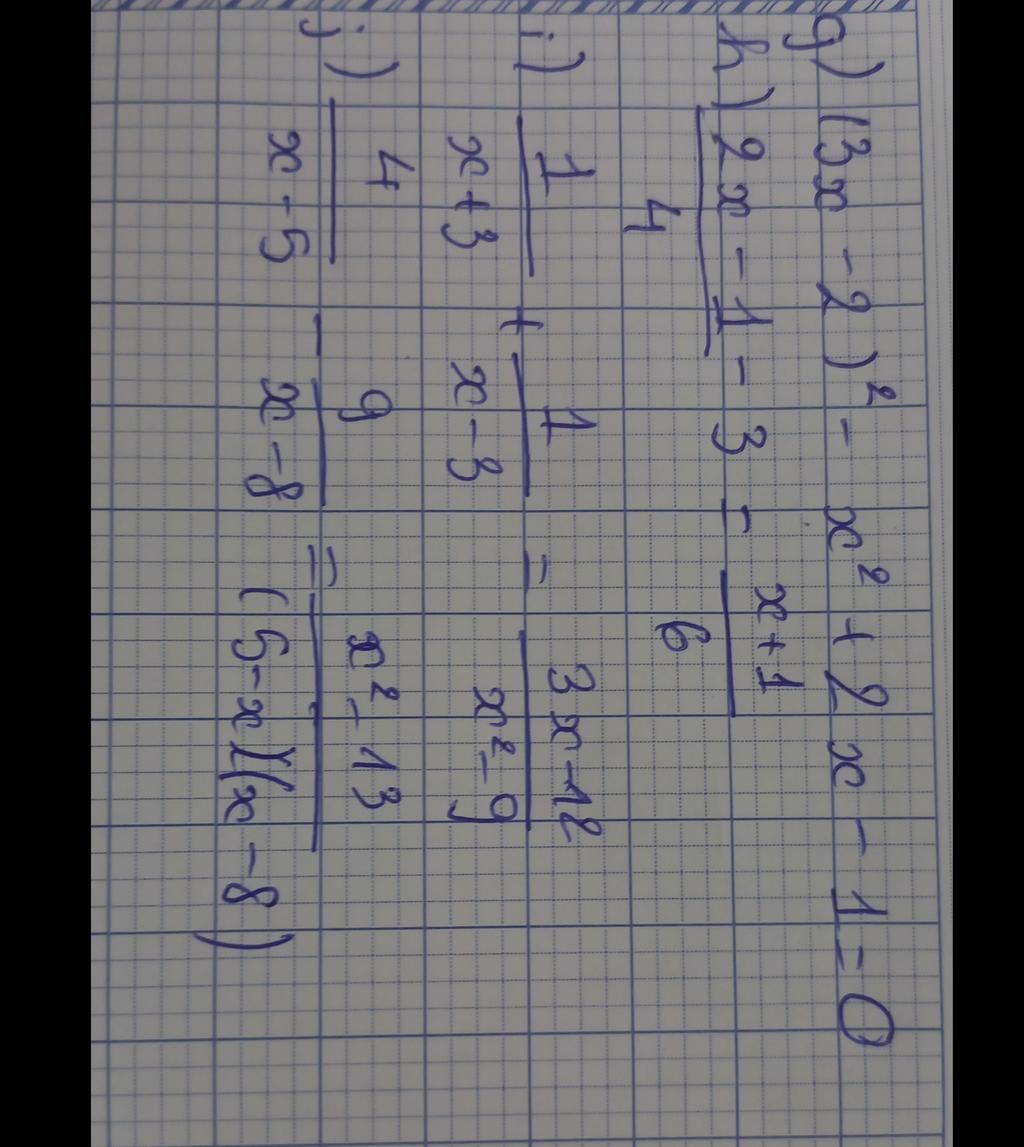 g) (3x - 2)² - x² + 2x - 1 = 0
h) (2x - 1)/4 - 3 = (x + 1)/6
i) 1/(x + 3) + 1/(x - 3) = (3x - 12)/(x² - 9)
j) 4/(x - 5) - 9/(x - 8) = (x² - 13)/((5 - x)(x - 8))